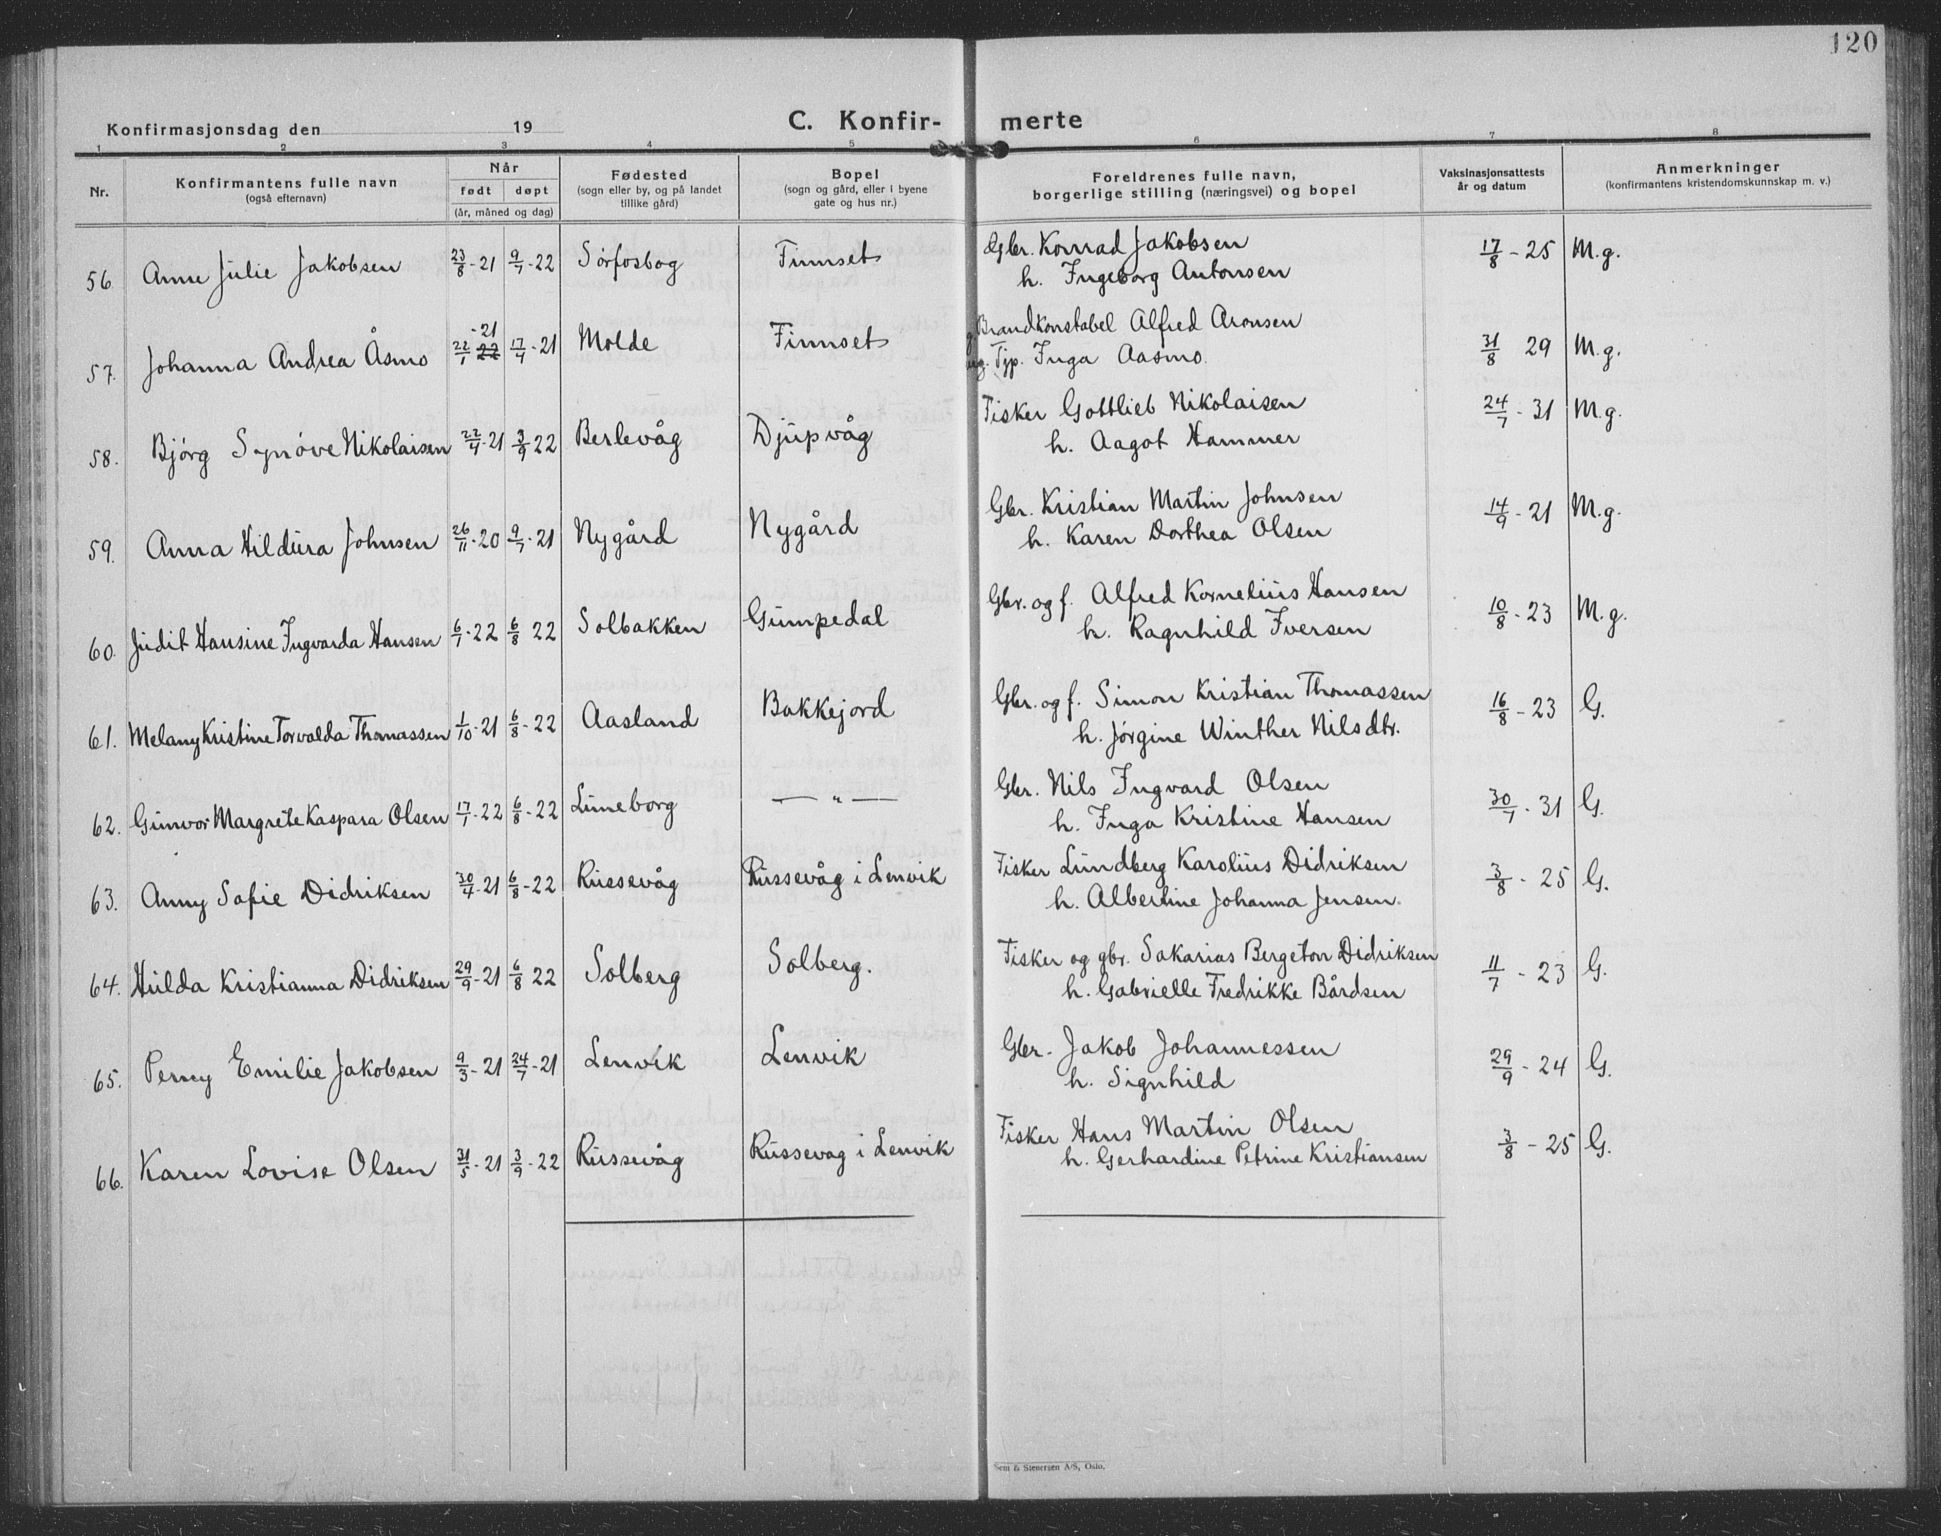 120
Konfirmasjonsdag den 19 C. Konfir- merte
1 2 3 4 5 6 7 8
Nr. Konfirmantens fulle navn (også efternavn) Når født døpt (år, måned og dag) Fødested (sogn eller by, og på landet tillike gård) Bopel (sogn og gård, eller i byene gate og hus nr.) Foreldrenes fulle navn, borgerlige stilling (næringsvei) og bopel Vaksinasjonsattests år og datum Anmerkninger (konfirmantens kristendomskunnskap m. v.)
56. Anne Julie Jakobsen 23/8-21 9/7-22 Sørfosbog Finnset Gbr. Konrad Jakobsen 17/8-25 M.g.
h. Ingeborg Antonsen
57. Johanna Andrea Åsmo 22/1 22 -21 17/4-21 Molde Finnset Brandkonstabel Alfred Aronsen 31/8 29 M.g.
og ug. Typ. Inga Aasmo.
58. Bjørg Synøve Nikolaisen 22/4-21 3/9 22 Berlevåg Djupvåg Fisker Gottlieb Nikolaisen 24/7-31 M.g.
h. Aagot Hammer
59. Anna Hildura Johnsen 26/11-20 9/7-21 Nygård Nygård Gbr. Kristian Martin Johnsen 14/9-21 M.g.
h. Karen Dorthea Olsen
60. Judit Hansine Ingvarda Hansen 6/7-22 6/8 22 Solbakken Gumpedal Gbr. og f. Alfred Kornelius Hansen 10/8-23 M.g.
h. Ragnhild Iversen
61. Melany Kristine Torvalda Thomassen 1/10-21 6/8-22 Aasland Bakkejord Gbr. og f. Simon Kristian Thomassen 16/8-23 G.
h. Jørgine Winther Nilsdtr.
62. Gunvor Margrete Kaspara Olsen 17/7-22 6/8-22 Luneborg — " — Gbr. Nils Ingvard Olsen 30/7-31 G.
h. Inga Kristine Hansen
63. Anny Sofie Didriksen 30/4-21 6/8-22 Russevåg Russevåg i Lenvik Fisker Lundberg Karolius Didriksen 3/8-25 G.
h. Albertine Johanna Jensen.
64. Hulda Kristianna Didriksen 29/9-21 6/8 22 Solberg Solberg. Fisker og gbr. Sakarias Bergeton Didriksen 11/7-23 G.
h. Gabrielle Fredrikke Bårdsen
65. Perny Emilie Jakobsen 9/3-21 24/7-21 Lenvik Lenvik Gbr. Jakob Johannessen 29/9-24 G.
h. Signhild
66. Karen Lovise Olsen 31/5-21 3/9-22 Russevåg Russevåg i Lenvik Fisker Hans Martin Olsen 3/8-25 G.
h. Gerhardine Petrine Kristiansen
Sem & Stenersen A/S, Oslo.